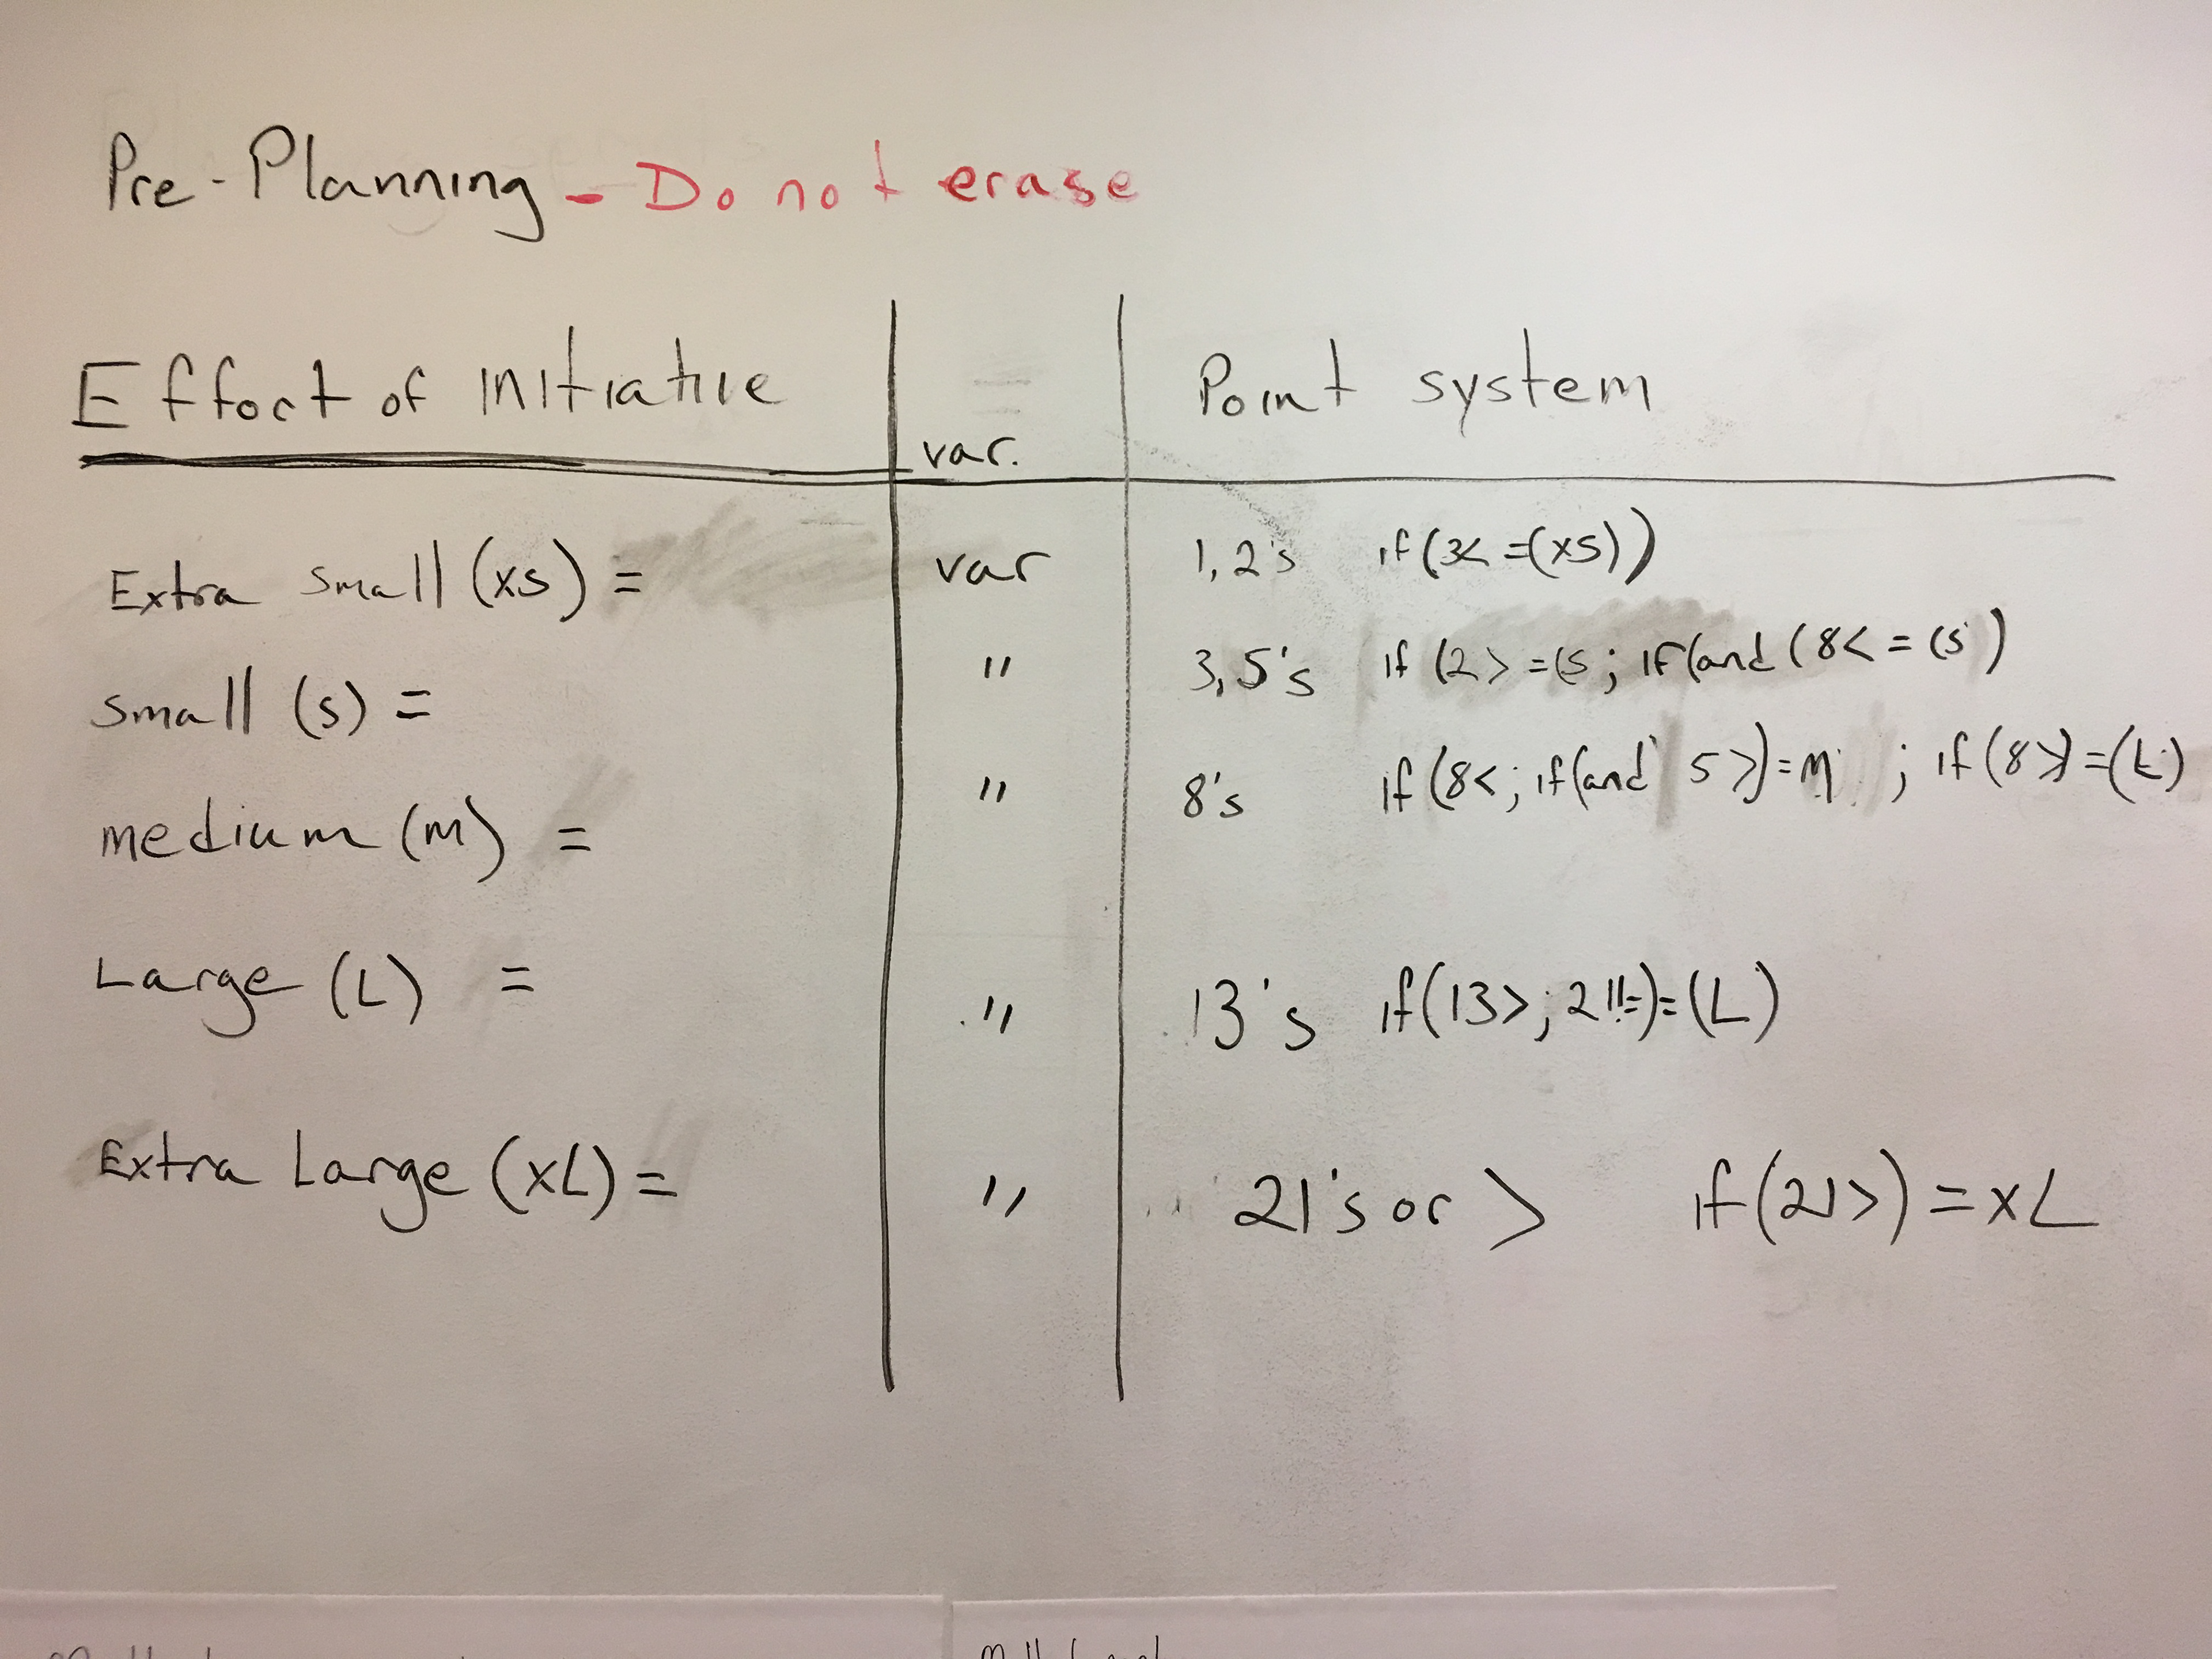 Pre-Planning - Do not erase
Effort of initiative var. Point system
Extra small (xs) = var 1,2's if(3< =(xs))
small (s) = " 3,5's if (2> =(s; if(and (8< = (s)
medium (m) = " 8's if (8<; if(and 5>)=M ; if(8>)=(L)
Large (L) = " 13's if(13>; 21!=)=(L)
Extra Large (xL) = " 21's or > if(21>)=xL